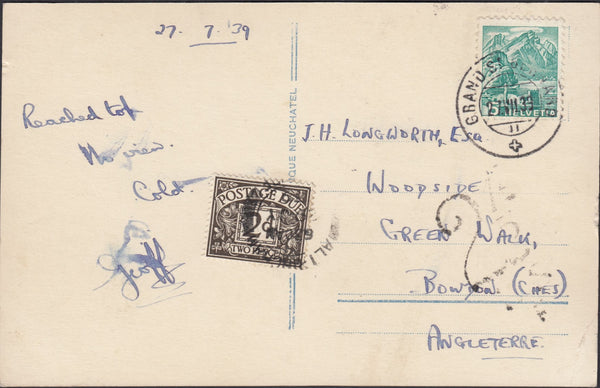 27. 7. 39
Reached top
No view.
Cold.
Geoff
QUE NEUCHATEL
J.H. LONGWORTH, ESQ
WOODSIDE
GREEN WALK,
BOWDON (CHES)
ANGLETERRE.
POSTAGE DUE
2d
TWO PENCE
GRAND S
27.VII.39
HELVETIA
5